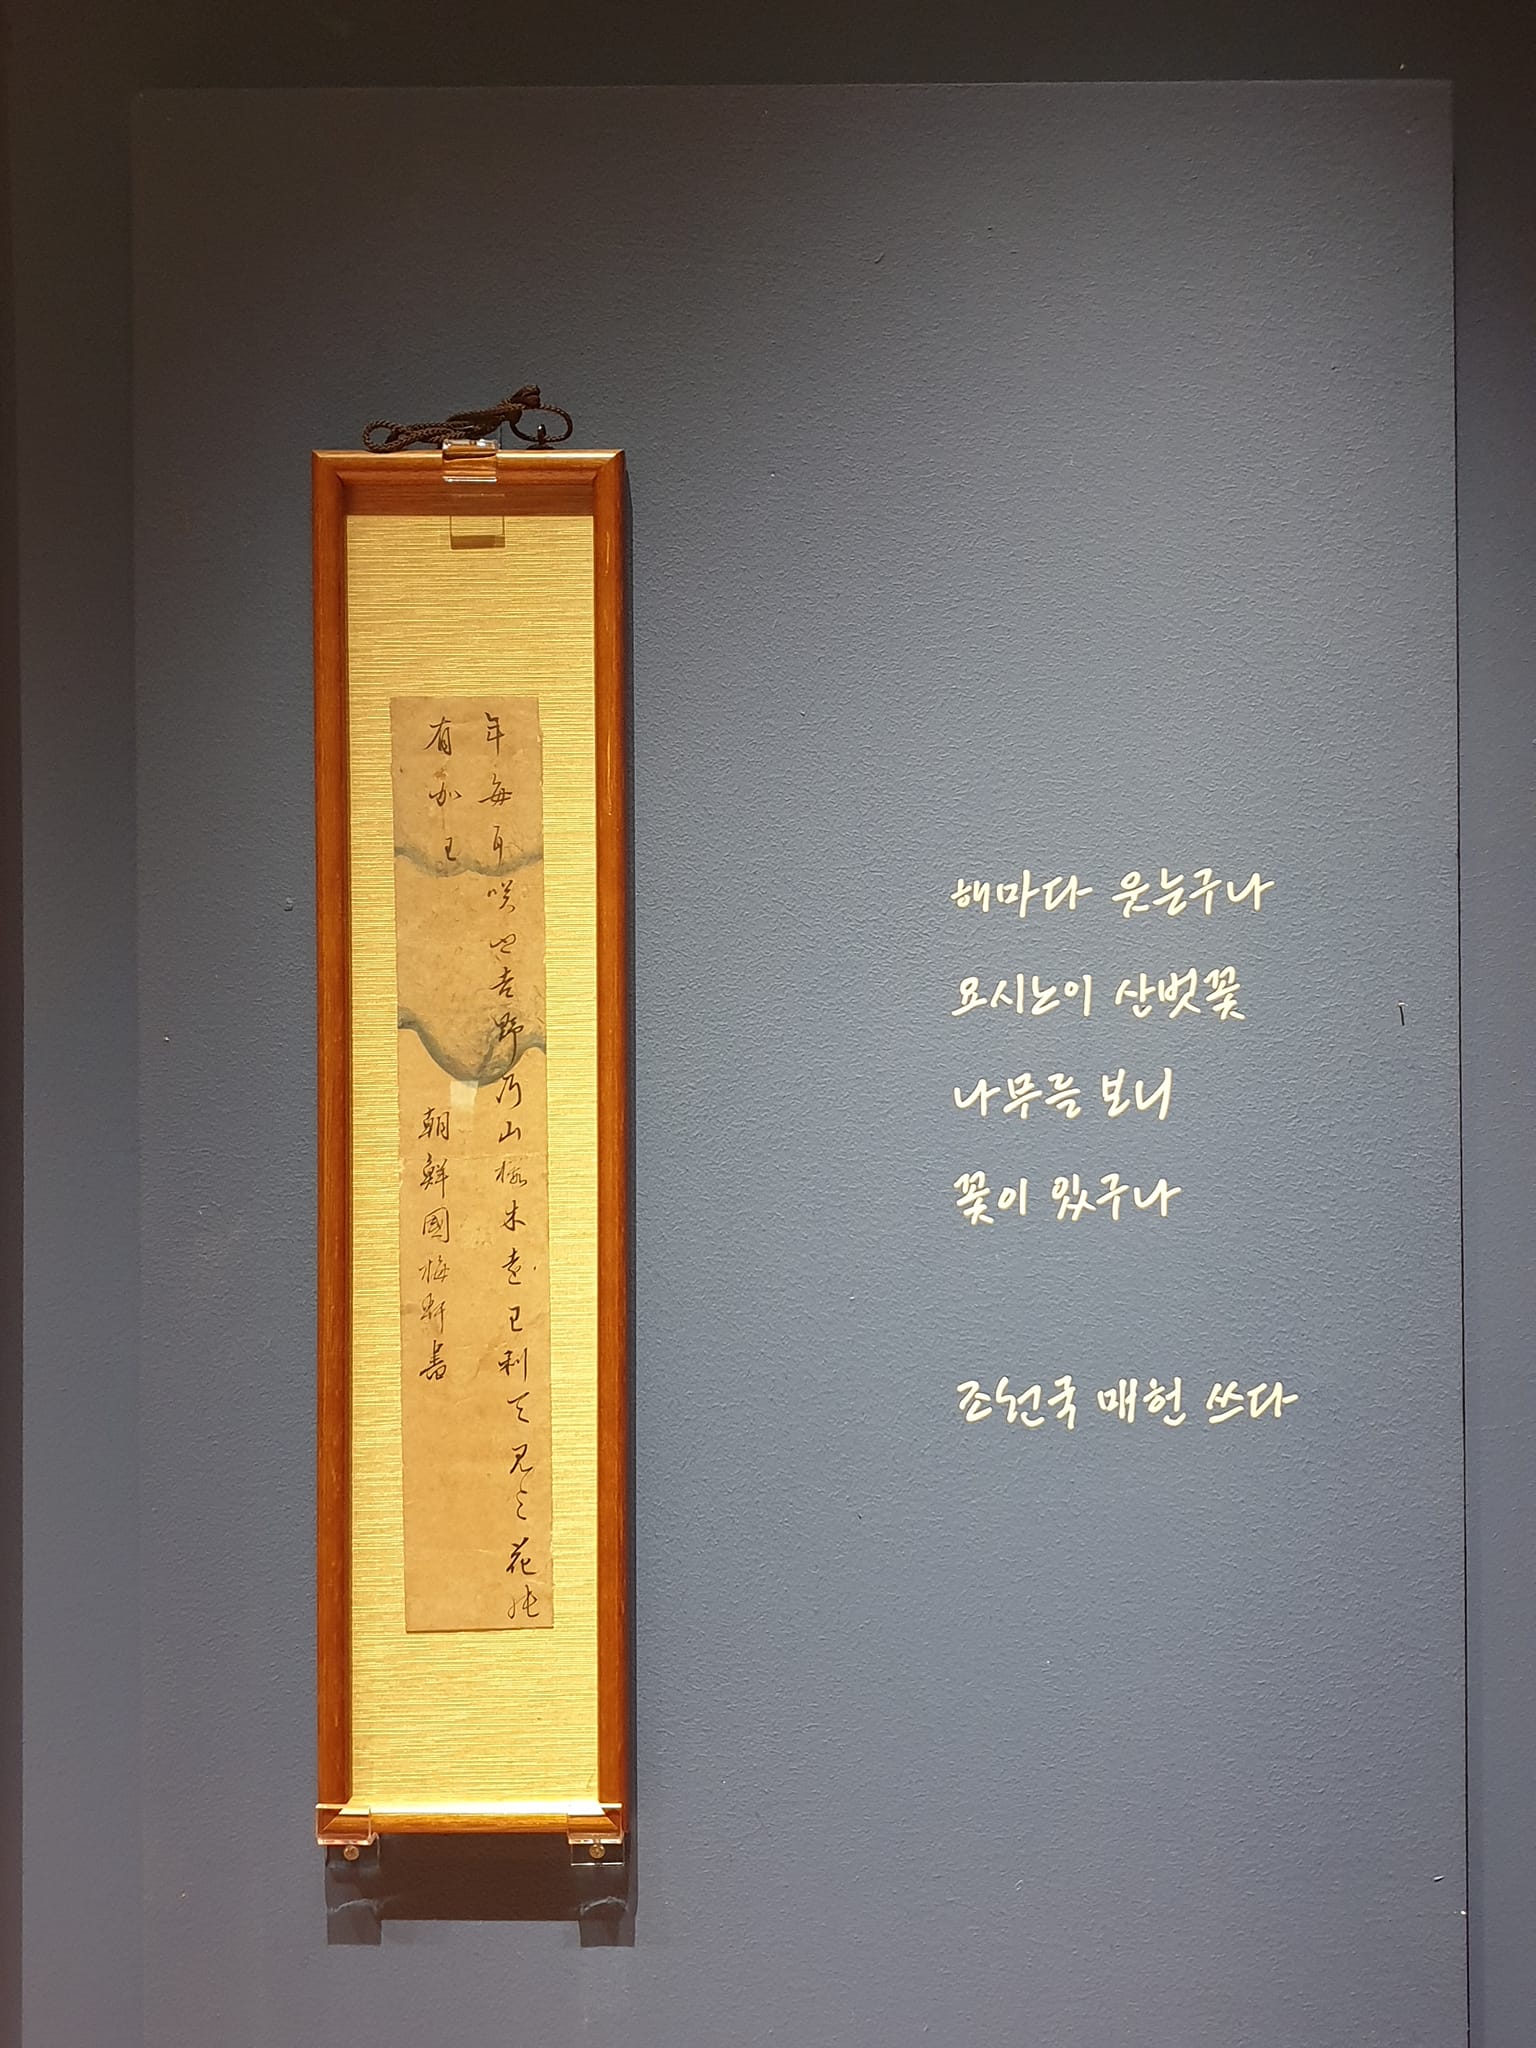 年每耳咲也吉野乃山桜木遠王利天見与花能
有加王
朝鮮國梅軒書
해마다 웃는구나
요시노이 산벚꽃
나무를 보니
꽃이 있구나
조선국 매헌 쓰다